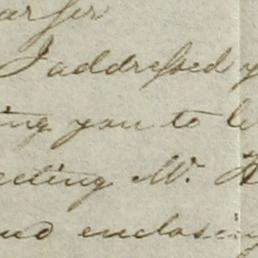 ar Sir
I addressed y
ing you to le
ecting Mr.
and enclosing